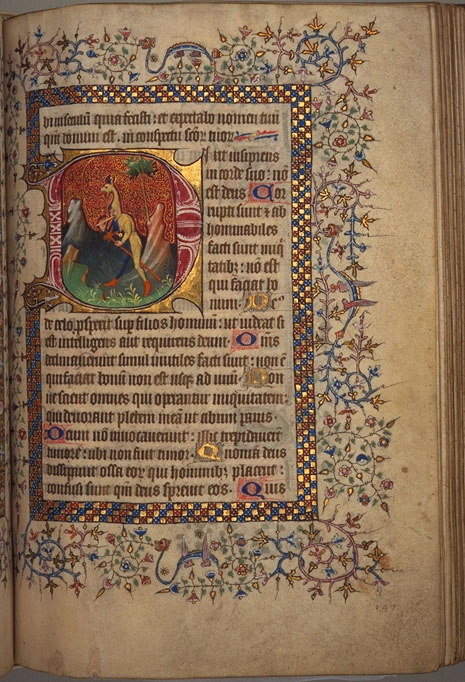 in seculum quia fecisti: et expectabo nomen tuū
qm̄ bonum est. in conspectu scōꝝ tuoꝝ
Dixit insipiens
in corde suo: nō
est deus Cor
rupti sunt et ab
hominabiles
facti sunt iniq̄
tatibꝫ: nō est
qui faciat bo
num. De⁹
de celo ꝓspexit sup̄ filios hominū: ut videat si
est intelligens aut requirens deum Om̄s
declinauerunt simul inutiles facti sunt: non ē
qui faciat bonū non est usqꝫ ad unū Non
ne scient omnes qui operantur iniquitatem:
qui deuorant plebem meā ut cibum panis
Deum nō inuocauerunt: illic trepidauerūt
timore: ubi non fuit timor Quoniā deus
dissipauit ossa eoꝝ qui hominibꝫ placent:
confusi sunt qm̄ deus spreuit eos. Quis